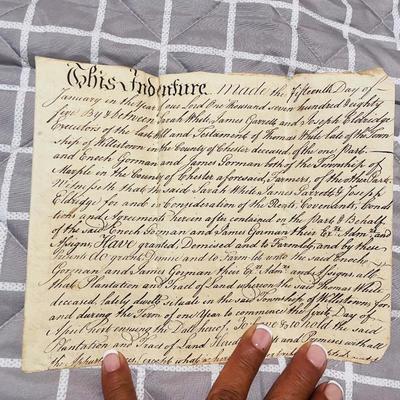 This Indenture made the fifteenth Day of
January in the Year of our Lord One Thousand seven hundred Eighty
five By & between Sarah White James Garrett and Joseph Eldridge
Executors of the last Will and Testament of Thomas White late of the Town
ship of Willistown in the County of Chester deceased, of the one Part
and Enoch Gorman and James Gorman both of the Township of
Marple in the County of Chester aforesaid, Farmers, of the other Part
Witnesseth that the said Sarah White James Garrett & Joseph
Eldridge for and in Consideration of the Rents, Covenants, Condi
tions and Agreements herein after contained on the Part & Behalf
of the said Enoch Gorman and James Gorman their Exrs Admrs and
Assigns Have granted, Demised and to Farm let, and by these
Presents do grant, Demise and to Farm let unto the said Enoch
Gorman and James Gorman their Exrs Admrs and Assigns all
that Plantation and Tract of Land whereon the said Thomas White
deceased, lately dwelt situate in the said Township of Willistown for
and during the Term of one Year to commence the first Day of
April next ensuing the Date hereof, To have & to hold the said
Plantation and Tract of Land and Premises with all
the except